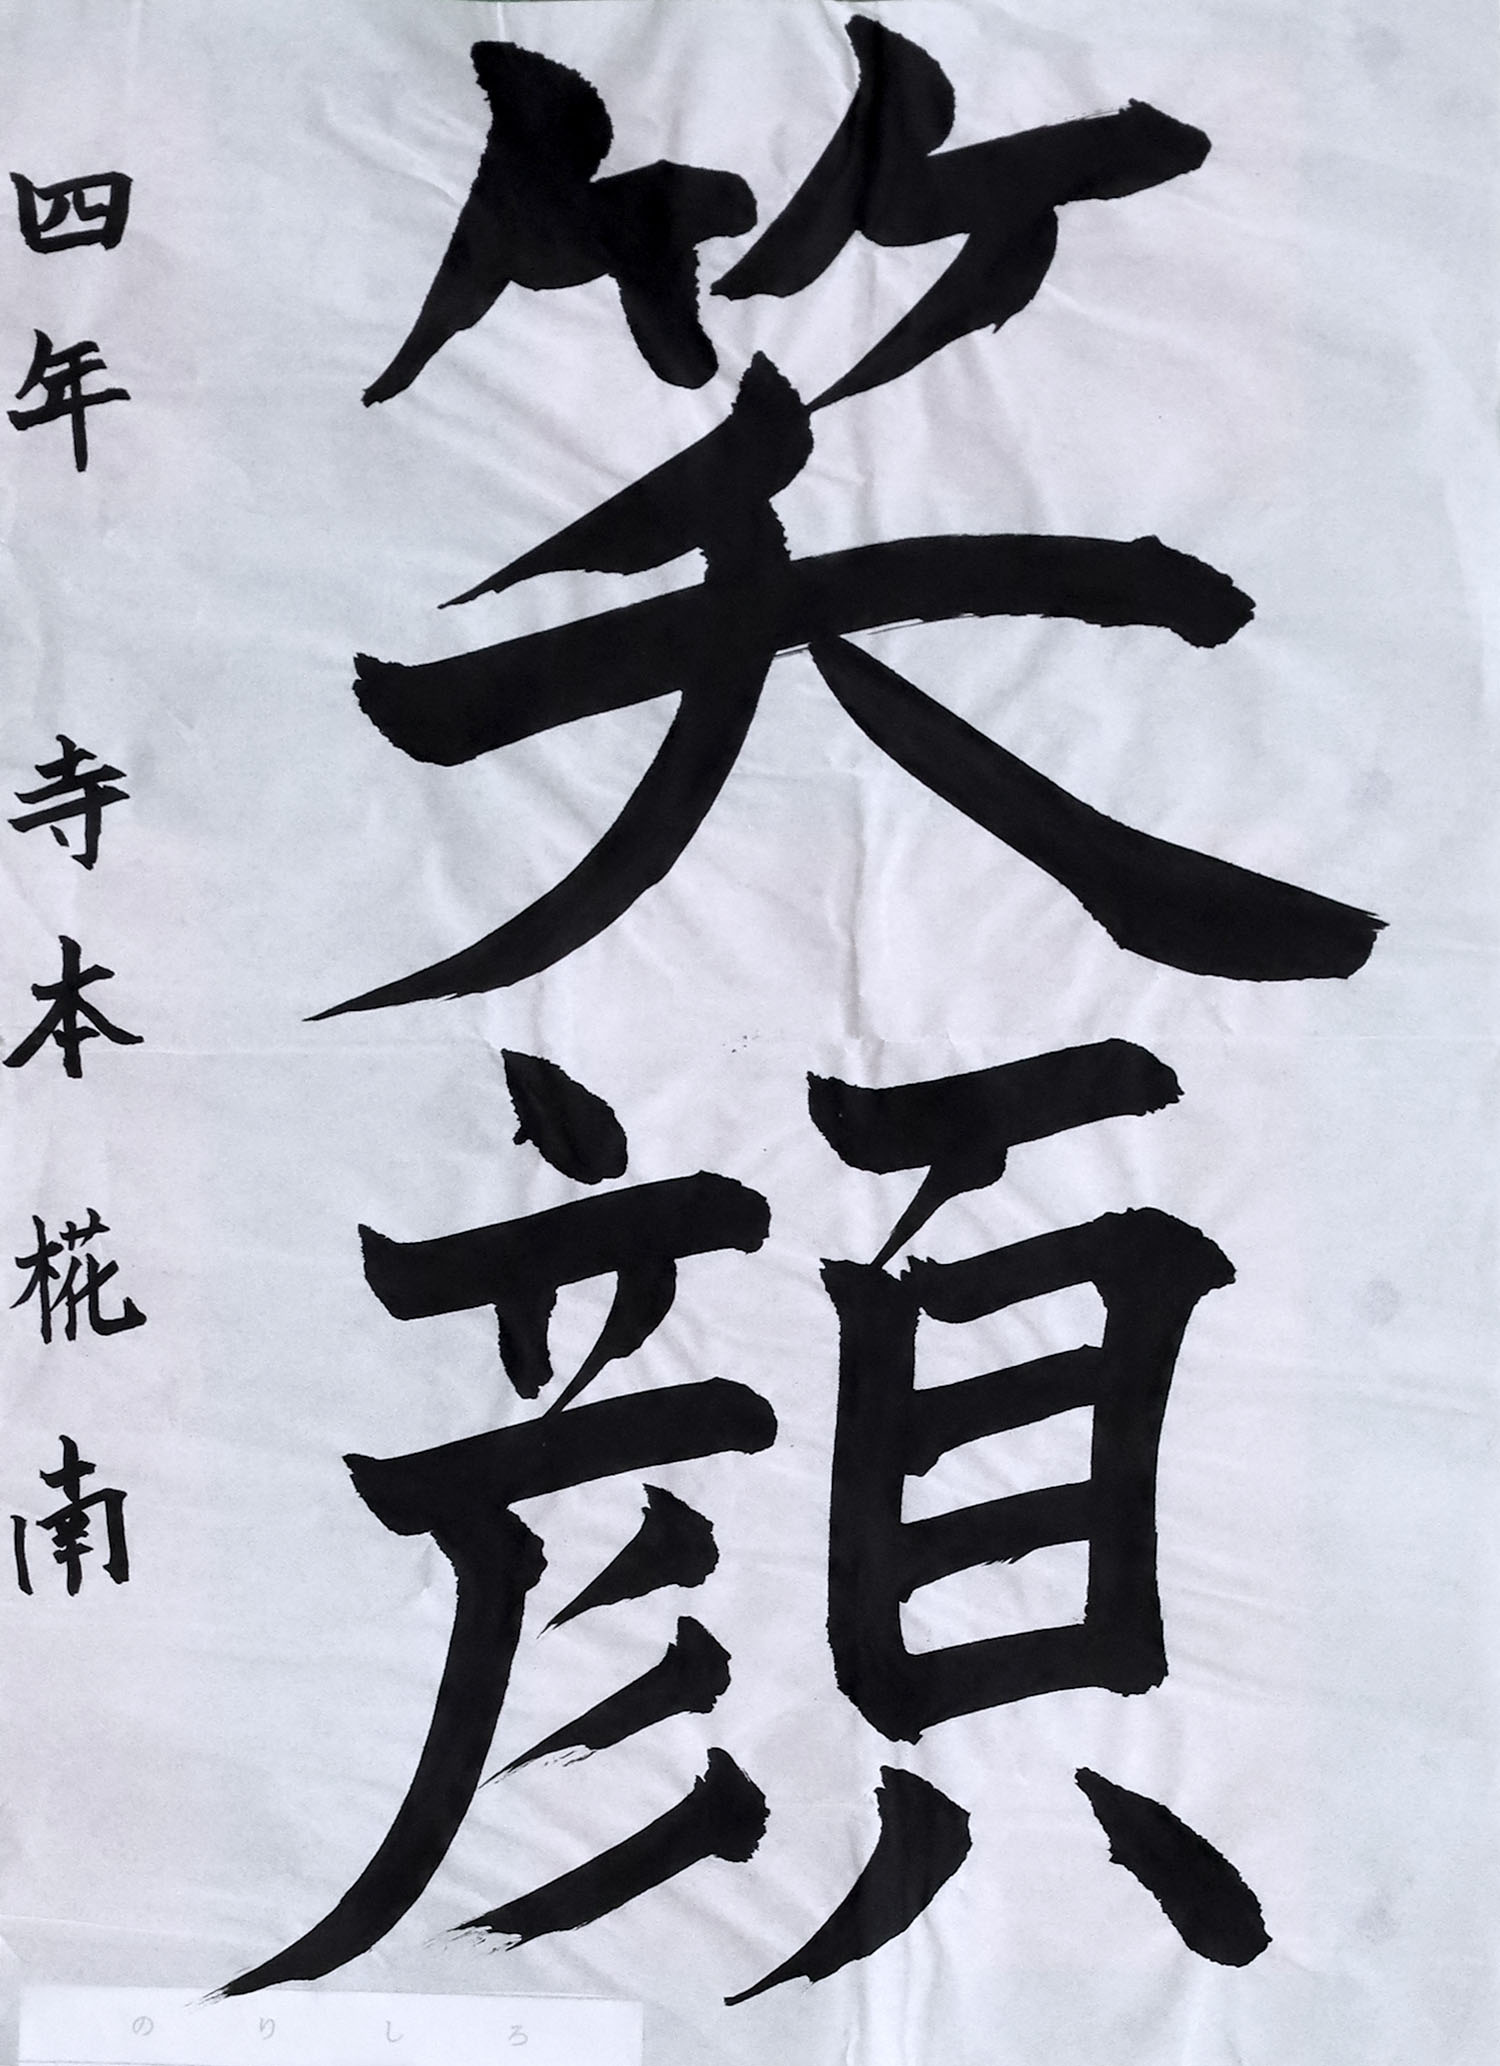 笑顔
四年 寺本 椛南
のりしろ